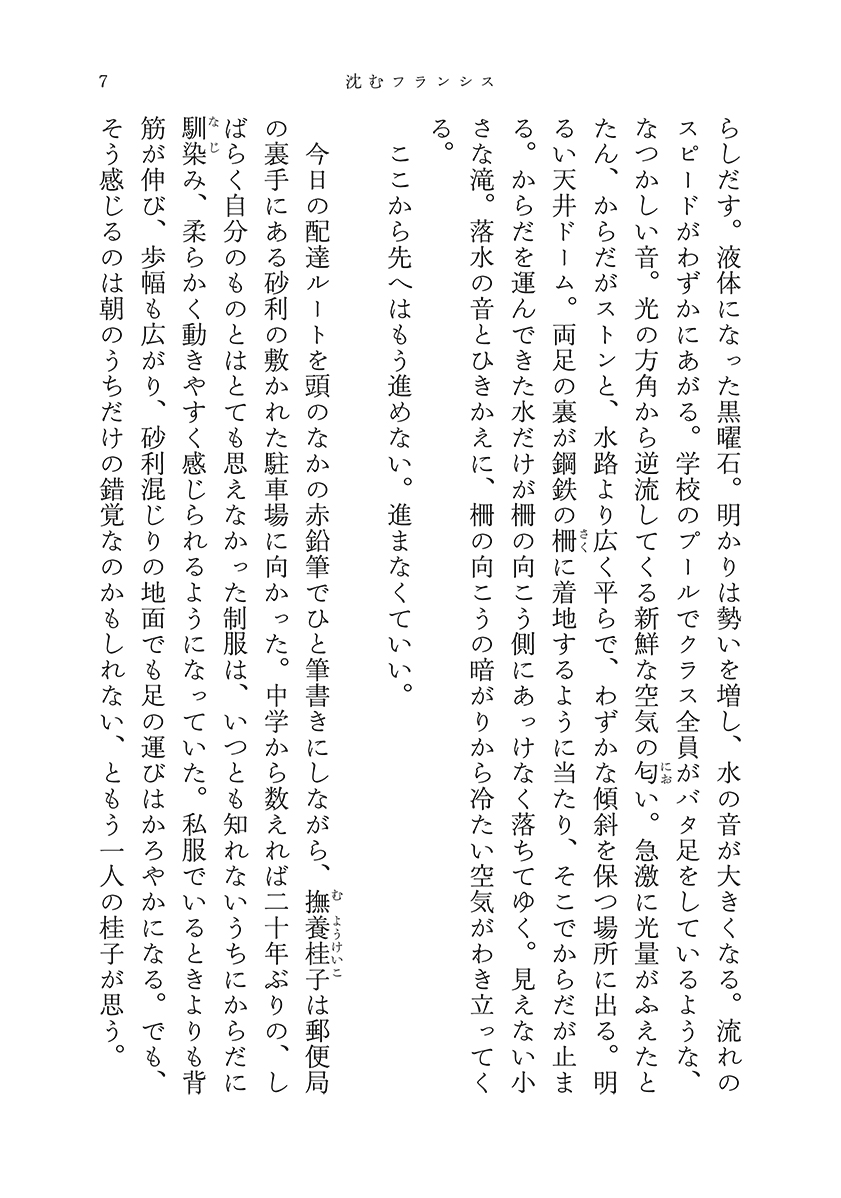 7
沈むフランシス
らしだす。液体になった黒曜石。明かりは勢いを増し、水の音が大きくなる。流れの
スピードがわずかにあがる。学校のプールでクラス全員がバタ足をしているような、
なつかしい音。光の方角から逆流してくる新鮮な空気の匂い。急激に光量がふえたと
たん、からだがストンと、水路より広く平らで、わずかな傾斜を保つ場所に出る。明
るい天井ドーム。両足の裏が鋼鉄の柵に着地するように当たり、そこでからだが止ま
る。からだを運んできた水だけが柵の向こう側にあっけなく落ちてゆく。見えない小
さな滝。落水の音とひきかえに、柵の向こうの暗がりから冷たい空気がわき立ってく
る。
ここから先へはもう進めない。進まなくていい。
今日の配達ルートを頭のなかの赤鉛筆でひと筆書きにしながら、撫養桂子は郵便局
の裏手にある砂利の敷かれた駐車場に向かった。中学から数えれば二十年ぶりの、し
ばらく自分のものとはとても思えなかった制服は、いつとも知れないうちにからだに
馴染み、柔らかく動きやすく感じられるようになっていた。私服でいるときよりも背
筋が伸び、歩幅も広がり、砂利混じりの地面でも足の運びはかろやかになる。でも、
そう感じるのは朝のうちだけの錯覚なのかもしれない、ともう一人の桂子が思う。